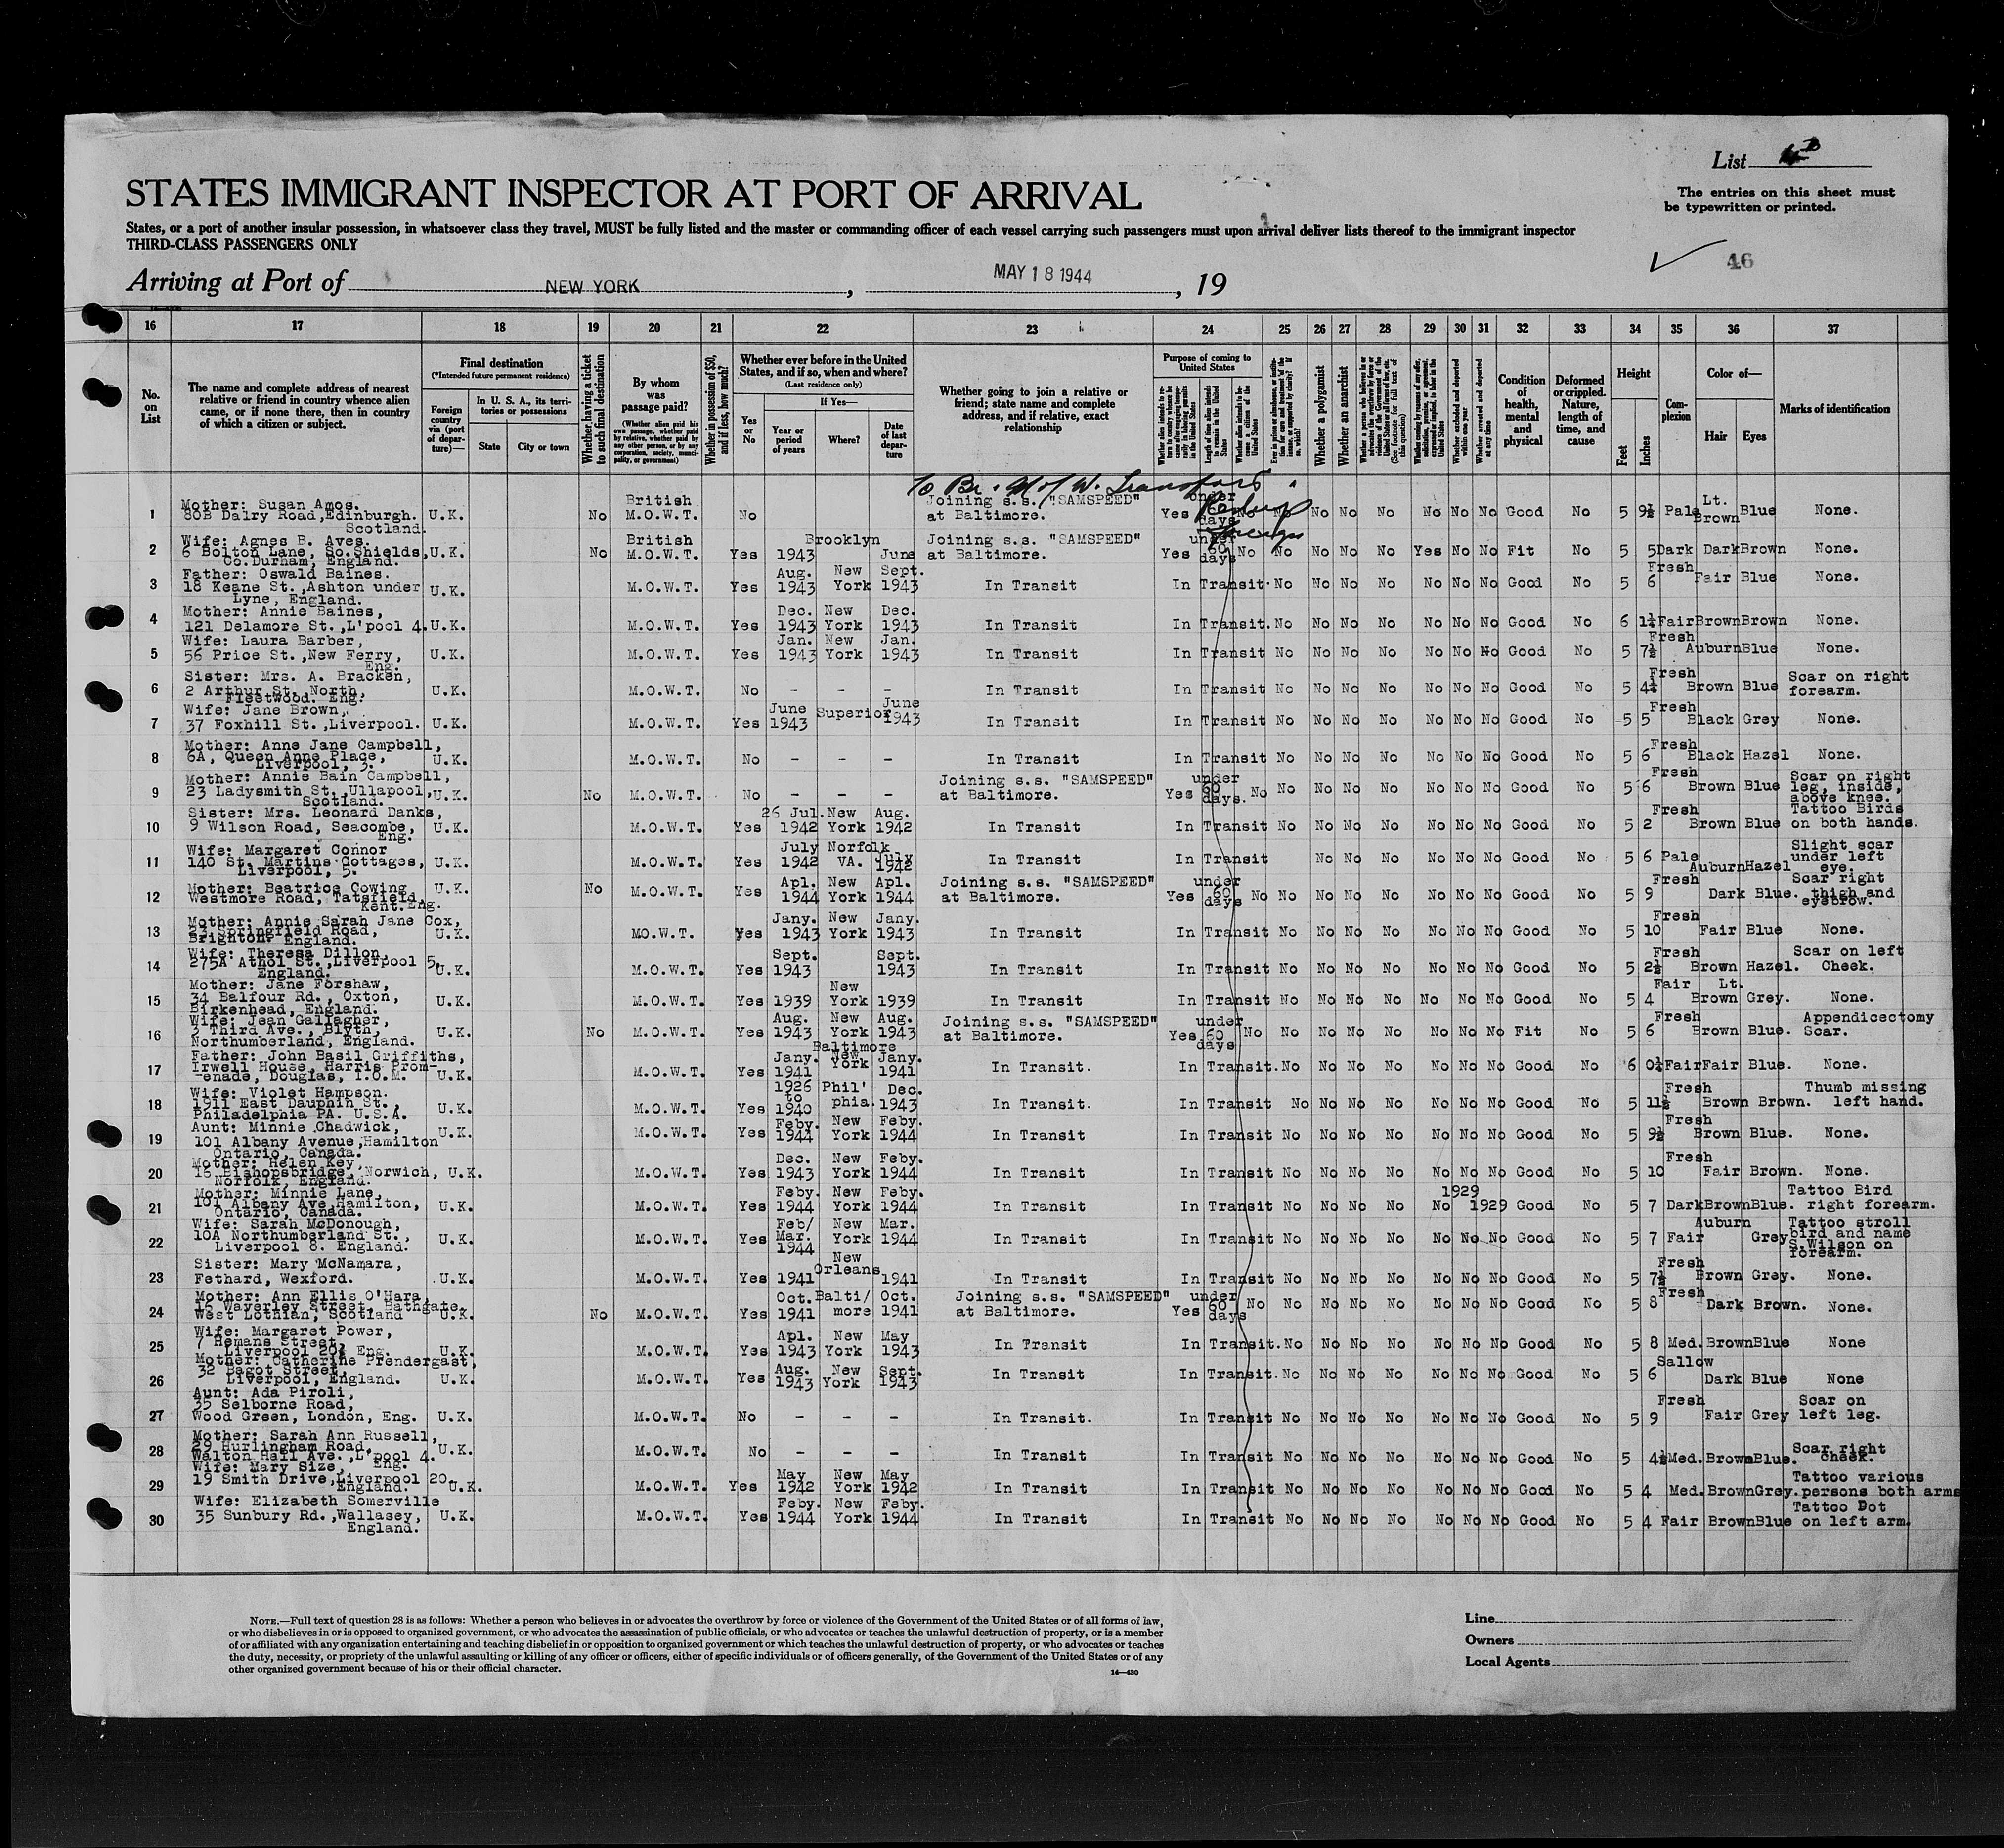 List
The entries on this sheet must
be typewritten or printed.
STATES IMMIGRANT INSPECTOR AT PORT OF ARRIVAL
States, or a port of another insular possession, in whatsoever class they travel, MUST be fully listed and the master or commanding officer of each vessel carrying such passengers must upon arrival deliver lists thereof to the immigrant inspector
THIRD-CLASS PASSENGERS ONLY
46
Arriving at Port of NEW YORK , MAY 18 1944 , 19
16 17 18 19 20 21 22 23 24 25 26 27 28 29 30 31 32 33 34 35 36 37
No. on List
The name and complete address of nearest relative or friend in country whence alien came, or if none there, then in country of which a citizen or subject.
Final destination
(*Intended future permanent residence)
Foreign country via (port of departure)—
In U. S. A., its territories or possessions
State
City or town
Whether having a ticket to such final destination
By whom was passage paid?
(Whether alien paid his own passage, whether paid by relative, whether paid by any other person, or by any corporation, society, municipality, or government)
Whether in possession of $50, and if less, how much?
Whether ever before in the United States, and if so, when and where?
(Last residence only)
Yes or No
If Yes—
Year or period of years
Where?
Date of last departure
Whether going to join a relative or friend; state name and complete address, and if relative, exact relationship
Purpose of coming to United States
Whether a polygamist
Whether an anarchist
Whether excluded and deported within one year
Whether arrested and deported at any time
Condition of health, mental and physical
Deformed or crippled. Nature, length of time, and cause
Height
Feet
Inches
Complexion
Color of—
Hair
Eyes
Marks of identification
To Br. M of W. Transport
1 Mother: Susan Amos. 80B Dalry Road,Edinburgh. Scotland. U.K. No British M.O.W.T. No Joining s.s. "SAMSPEED" at Baltimore. Yes under 60 days No No No No No No No No Good No 5 9½ Pale Lt. Brown Blue None.
2 Wife: Agnes B. Aves. 6 Bolton Lane, So.Shields, Co.Durham, England. U.K. No British M.O.W.T. Yes 1943 Brooklyn June Joining s.s. "SAMSPEED" at Baltimore. Yes under 60 days No No No No No Yes No No Fit No 5 5 Dark Dark Brown None.
3 Father: Oswald Baines. 18 Keane St.,Ashton under Lyne, England. U.K. M.O.W.T. Yes Aug. 1943 New York Sept. 1943 In Transit In Transit. No No No No No No No Good No 5 6 Fresh Fair Blue None.
4 Mother: Annie Baines, 121 Delamore St.,L'pool 4. U.K. M.O.W.T. Yes Dec. 1943 New York Dec. 1943 In Transit In Transit. No No No No No No No Good No 6 1½ Fair Brown Brown None.
5 Wife: Laura Barber, 56 Price St.,New Ferry, Eng. U.K. M.O.W.T. Yes Jan. 1943 New York Jan. 1943 In Transit In Transit No No No No No No No Good No 5 7½ Fresh Auburn Blue None.
6 Sister: Mrs. A. Bracken, 2 Arthur St. North, Fleetwood. Eng. U.K. M.O.W.T. No - - - In Transit In Transit No No No No No No No Good No 5 4½ Fresh Brown Blue Scar on right forearm.
7 Wife: Jane Brown, 37 Foxhill St.,Liverpool. U.K. M.O.W.T. Yes June 1943 Superior June 1943 In Transit In Transit No No No No No No No Good No 5 5 Fresh Black Grey None.
8 Mother: Anne Jane Campbell, 6A, Queen Anne Place, Liverpool, 3. U.K. M.O.W.T. No - - - In Transit In Transit No No No No No No No Good No 5 6 Fresh Black Hazel None.
9 Mother: Annie Bain Campbell, 23 Ladysmith St.,Ullapool, Scotland. U.K. No M.O.W.T. No - - - Joining s.s. "SAMSPEED" at Baltimore. Yes under 60 days. No No No No No No No No Good No 5 6 Fresh Brown Blue Scar on right leg, inside, above knee.
10 Sister: Mrs. Leonard Danks, 9 Wilson Road, Seacombe, Eng. U.K. M.O.W.T. Yes 26 Jul. 1942 New York Aug. 1942 In Transit In Transit No No No No No No No Good No 5 2 Fresh Brown Blue Tattoo Birds on both hands.
11 Wife: Margaret Connor 140 St. Martins Cottages, Liverpool, 5. U.K. M.O.W.T. Yes July 1942 Norfolk VA. July 1942 In Transit In Transit No No No No No No Good No 5 6 Pale Auburn Hazel Slight scar under left eye.
12 Mother: Beatrice Cowing Westmore Road, Tatsfield, Kent.Eng. U.K. No M.O.W.T. Yes Apl. 1944 New York Apl. 1944 Joining s.s. "SAMSPEED" at Baltimore. Yes under 60 days No No No No No No No No Good No 5 9 Fresh Dark Blue. Scar right thigh and eyebrow.
13 Mother: Annie Sarah Jane Cox, 23 Springfield Road, Brighton. England. U.K. MO.W.T. Yes Jany. 1943 New York Jany. 1943 In Transit In Transit No No No No No No No Good No 5 10 Fresh Fair Blue None.
14 Wife: Theresa Dillon, 275A Athol St.,Liverpool 5. England. U.K. M.O.W.T. Yes Sept. 1943 Sept. 1943 In Transit In Transit No No No No No No No Good No 5 2½ Fresh Brown Hazel. Scar on left Cheek.
15 Mother: Jane Forshaw, 34 Balfour Rd., Oxton, Birkenhead, England. U.K. M.O.W.T. Yes 1939 New York 1939 In Transit In Transit No No No No No No No Good No 5 4 Fair Lt. Brown Grey. None.
16 Wife: Jean Gallagher, 3 Third Ave., Blyth, Northumberland, England. U.K. No M.O.W.T. Yes Aug. 1943 New York Aug. 1943 Joining s.s. "SAMSPEED" at Baltimore. Yes under 60 days No No No No No No No No Fit No 5 6 Fresh Brown Blue. Appendicectomy Scar.
17 Father: John Basil Griffiths, Irwell House, Harris Prom- -enade, Douglas, I.O.M. U.K. M.O.W.T. Yes Jany. 1941 Baltimore New York Jany. 1941 In Transit. In Transit. No No No No No No No Good No 6 0½ Fair Fair Blue. None.
18 Wife: Violet Hampson. 1911 East Dauphin St., Philadelphia PA. U.S.A. U.K. M.O.W.T. Yes 1926 to 1940 Phil' phia. Dec. 1943 In Transit. In Transit No No No No No No No Good No 5 11½ Fresh Brown Brown. Thumb missing left hand.
19 Aunt: Minnie Chadwick, 101 Albany Avenue,Hamilton Ontario, Canada. U.K. M.O.W.T. Yes Feby. 1944 New York Feby. 1944 In Transit In Transit No No No No No No No Good No 5 9½ Fresh Brown Blue. None.
20 Mother: Helen Key, 16 Bishopsbridge, Norwich, Norfolk, England. U.K. M.O.W.T. Yes Dec. 1943 New York Feby. 1944 In Transit In Transit No No No No No No No Good No 5 10 Fresh Fair Brown. None.
21 Mother: Minnie Lane, 101 Albany Ave,Hamilton, Ontario, Canada. U.K. M.O.W.T. Yes Feby. 1944 New York Feby. 1944 In Transit In Transit No No No No No 1929 1929 Good No 5 7 Dark Brown Blue. Tattoo Bird right forearm.
22 Wife: Sarah McDonough, 10A Northumberland St., Liverpool 8. England. U.K. M.O.W.T. Yes Feb/ Mar. 1944 New York Mar. 1944 In Transit In Transit No No No No No No No Good No 5 7 Fair Auburn Grey Tattoo stroll bird and name S.Wilson on forearm.
23 Sister: Mary McNamara, Fethard, Wexford. U.K. M.O.W.T. Yes 1941 New Orleans 1941 In Transit In Transit No No No No No No No Good No 5 7½ Fresh Brown Grey. None.
24 Mother: Ann Ellis O'Hara, 16 Waverley Street, Bathgate, West Lothian, Scotland U.K. No M.O.W.T. Yes Oct. 1941 Balti/ more Oct. 1941 Joining s.s. "SAMSPEED" at Baltimore. Yes under 60 days No No No No No No No No Good No 5 8 Fresh Dark Brown. None.
25 Wife: Margaret Power, 7 Hemans Street, Liverpool 20. Eng. U.K. M.O.W.T. Yes Apl. 1943 New York May 1943 In Transit In Transit. No No No No No No No Good No 5 8 Med. Brown Blue None
26 Mother: Catherine Prendergast, 32 Bagot Street, Liverpool, England. U.K. M.O.W.T. Yes Aug. 1943 New York Sept. 1943 In Transit In Transit. No No No No No No No Good No 5 6 Sallow Dark Blue None
27 Aunt: Ada Piroli, 35 Selborne Road, Wood Green, London, Eng. U.K. M.O.W.T. No - - - In Transit. In Transit No No No No No No No Good No 5 9 Fresh Fair Grey Scar on left leg.
28 Mother: Sarah Ann Russell, 29 Hurlingham Road, Walton Hall Ave.,L'pool 4. Eng. U.K. M.O.W.T. No - - - In Transit In Transit No No No No No No No Good No 5 4½ Med. Brown Blue. Scar right cheek.
29 Wife: Mary Size, 19 Smith Drive,Liverpool 20. England. U.K. M.O.W.T. Yes May 1942 New York May 1942 In Transit In Transit No No No No No No No Good No 5 4 Med. Brown Grey. Tattoo various persons both arms
30 Wife: Elizabeth Somerville 35 Sunbury Rd.,Wallasey, England. U.K. M.O.W.T. Yes Feby. 1944 New York Feby. 1944 In Transit In Transit No No No No No No No Good No 5 4 Fair Brown Blue Tattoo Dot on left arm.
NOTE.—Full text of question 28 is as follows: Whether a person who believes in or advocates the overthrow by force or violence of the Government of the United States or of all forms of law,
or who disbelieves in or is opposed to organized government, or who advocates the assassination of public officials, or who advocates or teaches the unlawful destruction of property, or is a member
of or affiliated with any organization entertaining and teaching disbelief in or opposition to organized government or which teaches the unlawful destruction of property, or who advocates or teaches
the duty, necessity, or propriety of the unlawful assaulting or killing of any officer or officers, either of specific individuals or of officers generally, of the Government of the United States or of any
other organized government because of his or their official character.
14—430
Line
Owners
Local Agents